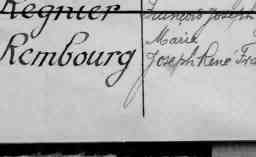 Regnier François Joseph
Marie
Rembourg Joseph René Fra